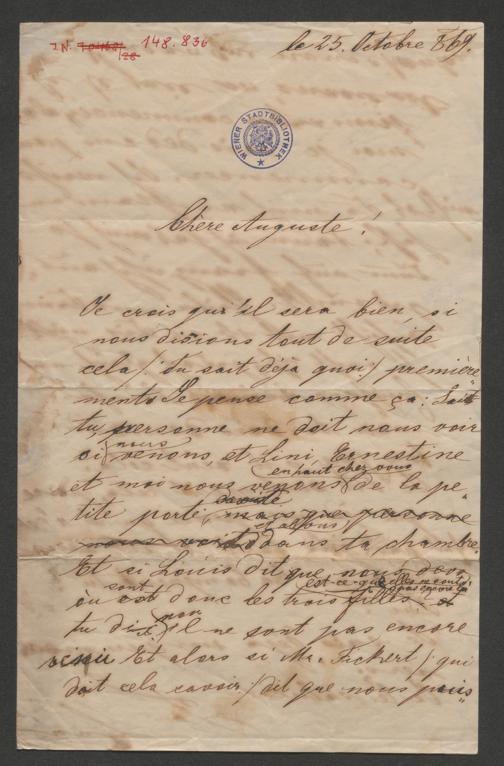 J.N. 148.836
le 25. Octobre 869.
WIENER STADTBIBLIOTHEK
Chère Auguste!
Je crois qu'il sera bien, si
nous disions tout de suite
cela /: tu sait déjà quoi :/ première"
ments Je pense comme ça: Sait
tu, personne ne doit nous voir
si nous venons, et Lini, Ernestine
et moi nous venons en haut chez vous de la pe"
tite porte, mais que personne
nous voit et allons dans ta chambre.
Et si Louis dit que nous
est-ce-que elles
où sont est donc les trois filles
tu dis: non il ne sont pas encore
venu Et alors si Mr. Fickert /: qui
doit cela savoir :/ dit que nous puis"